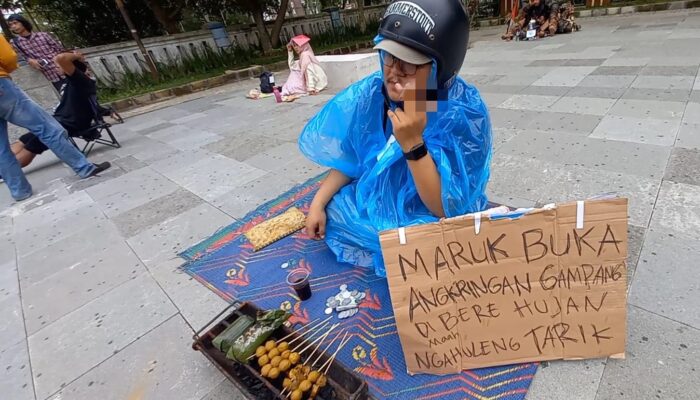 MARUK BUKA
ANGKRINGAN GAMPANG
DI BERE HUJAN
maah
NGAHULENG TARIK